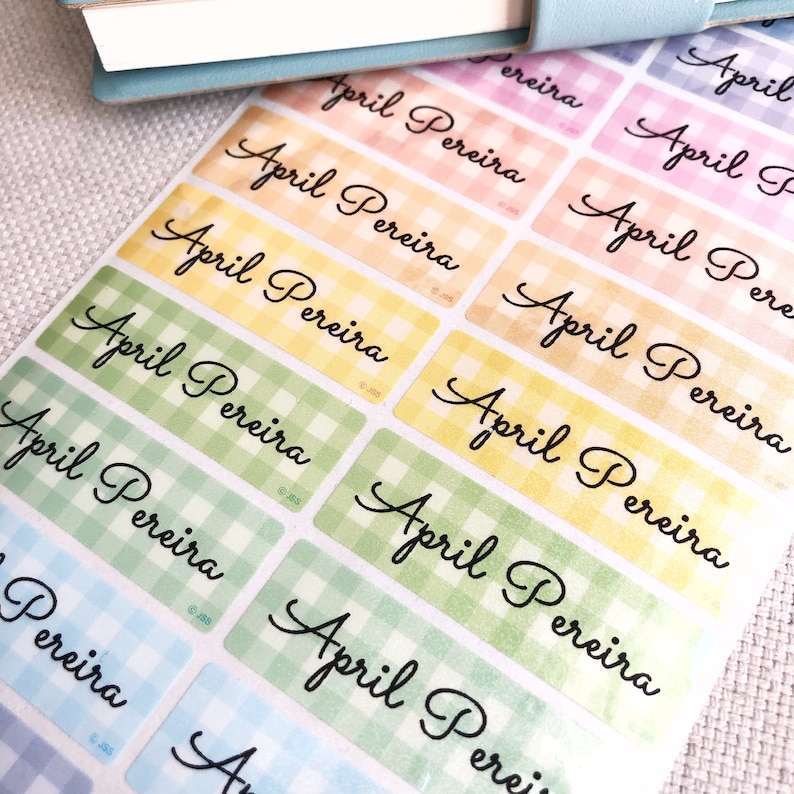 Pereira
April
April Pereira
© JSS
April P
April Pereira
© JSS
April Pereira
April Pereira
© JSS
April Pereira
April Pereira
© JSS
April Pereira
April Pereira
© JSS
April Pereira
April Pereira
© JSS
April Pereira
Pereira
© JSS
April